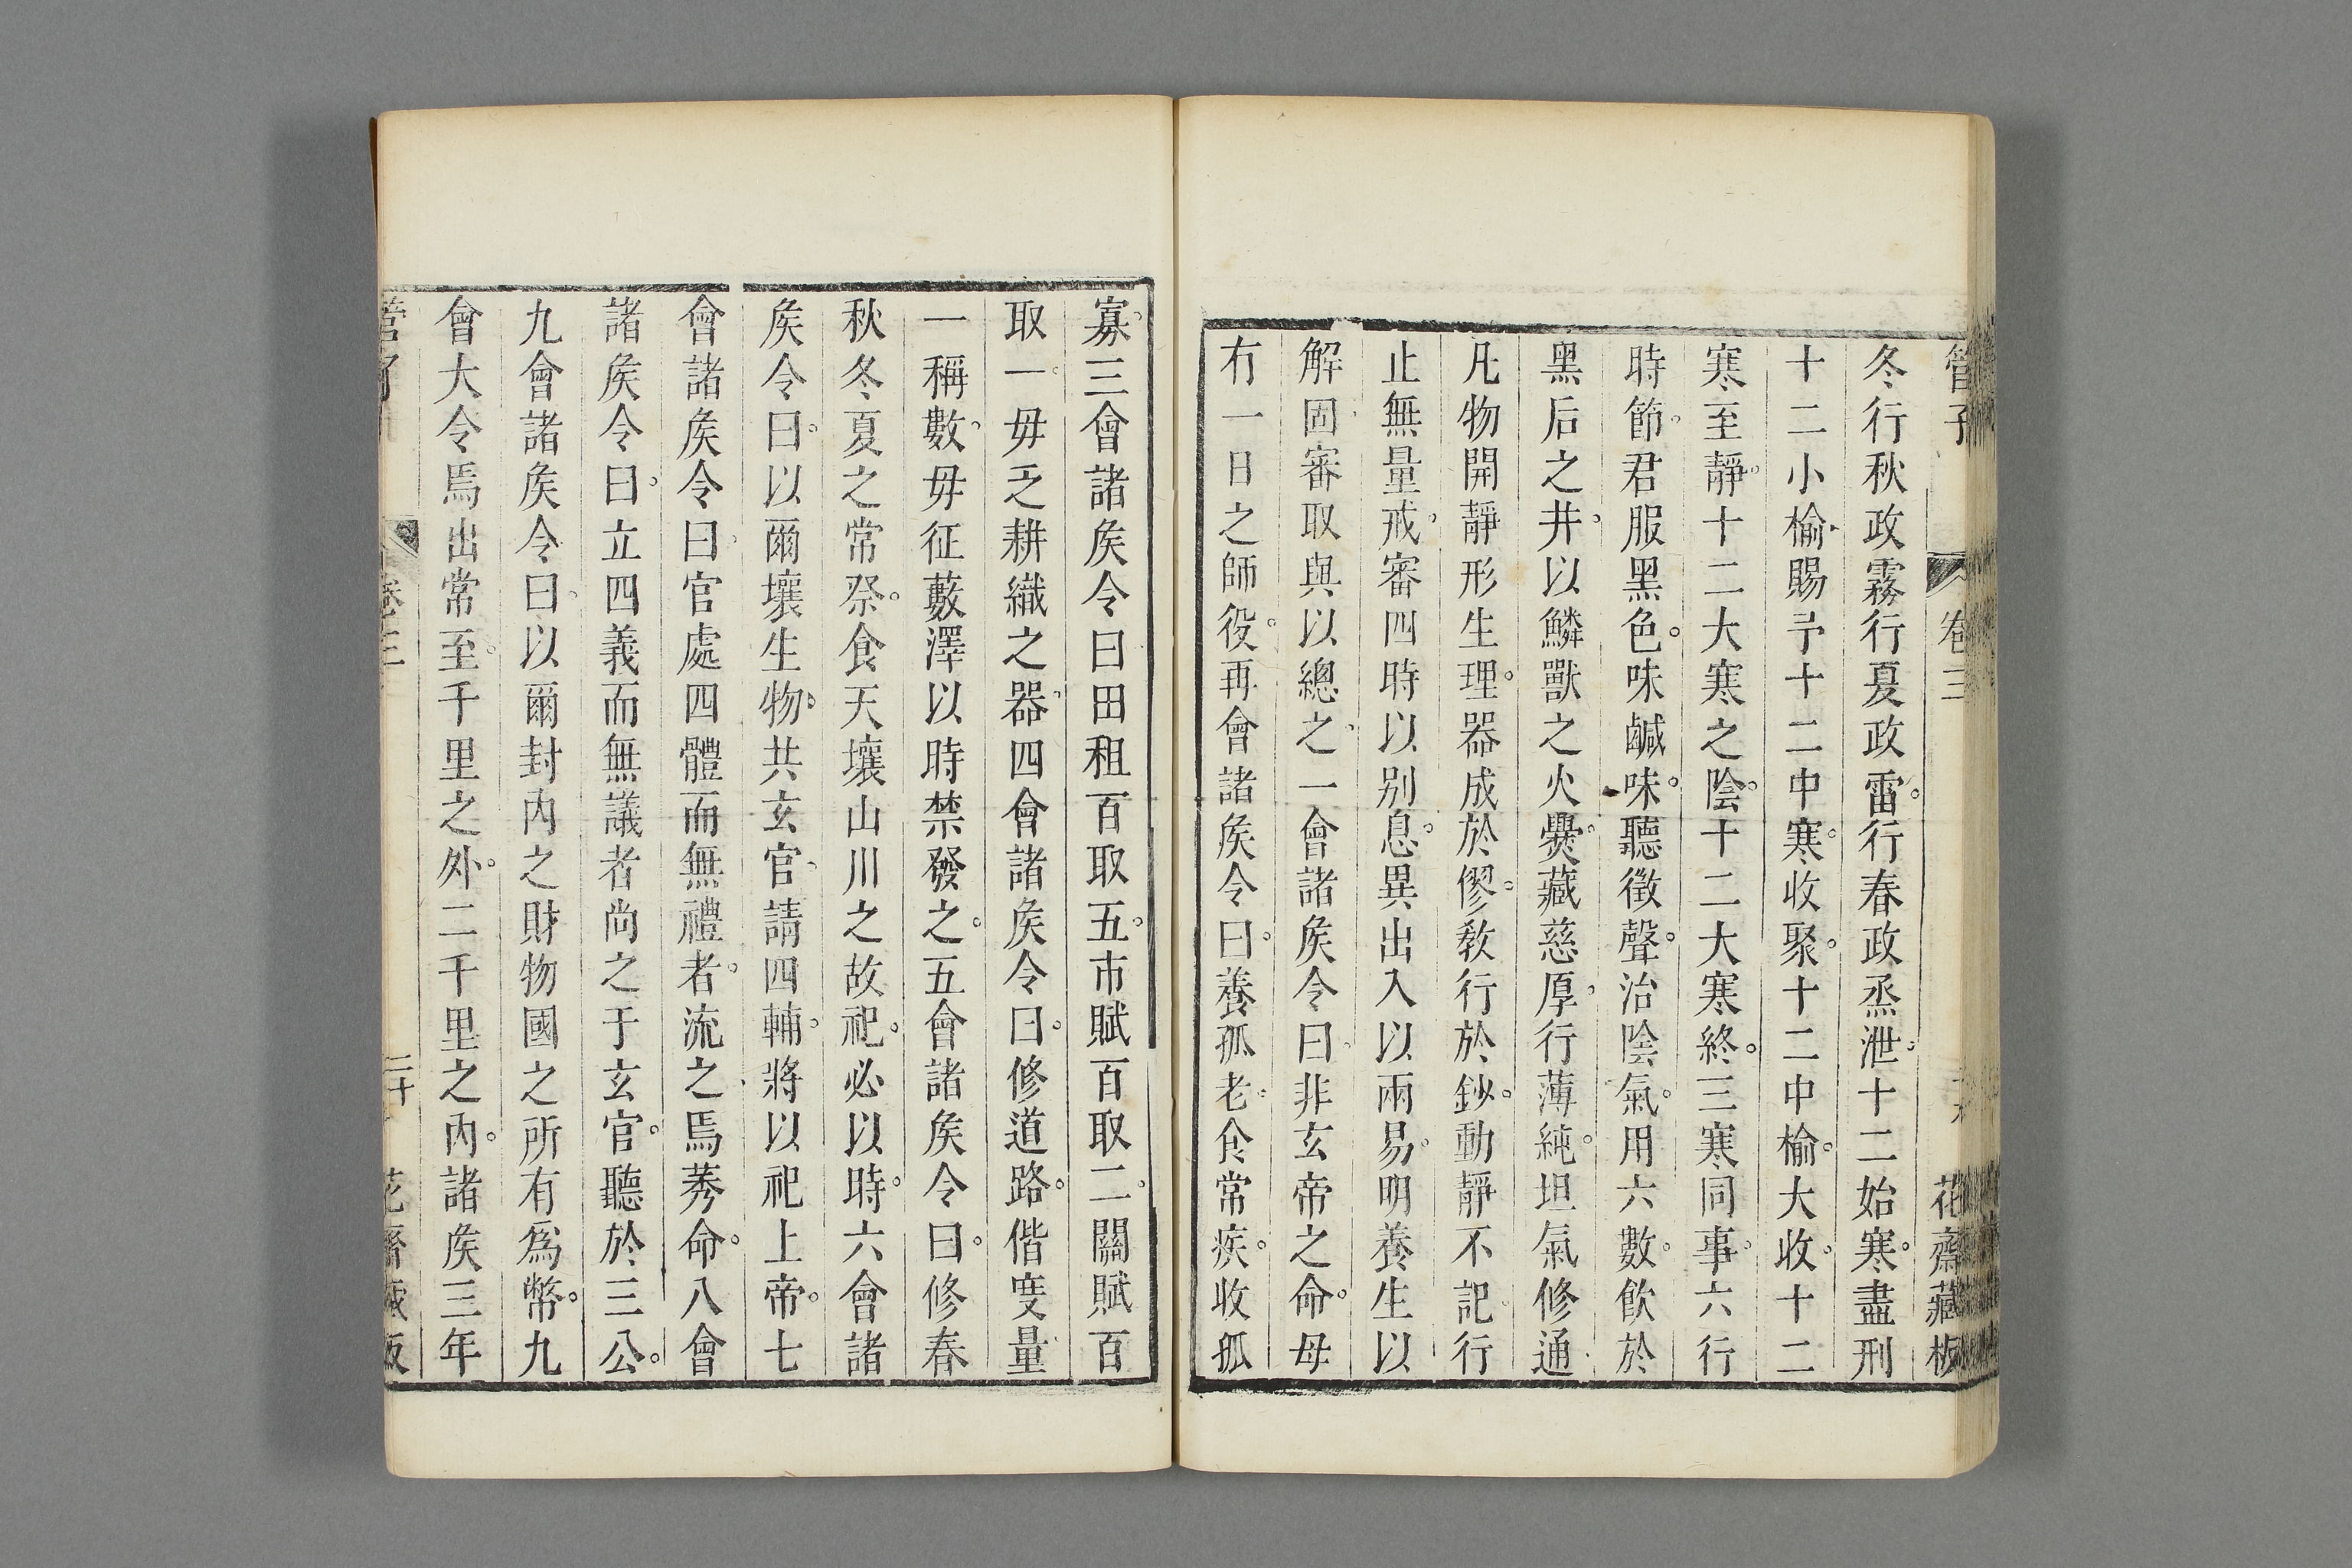 管子 卷三 花齋藏板
冬行秋政霧行夏政雷。行春政烝泄。十二始寒。盡刑
十二小榆。賜予十二中寒。收聚。十二中榆。大收。十二
寒至靜。十二大寒之陰。十二大寒終。三寒同事。六行
時節。君服黑色。味鹹味。聽徵聲。治陰氣。用六數。飲於
黑后之井。以鱗獸之火爨。藏慈厚。行薄純。坦氣修通
凡物開靜形生理。器成於僇。敎行於鈔。動靜不記。行
止無量戒。審四時以别息。異出入以兩易。明養生以
解固。審取與以總之。一會諸矦令曰。非玄帝之命。毋
有一日之師役。再會諸矦令曰。養孤老。食常疾。收孤
寡。三會諸矦令曰田租百取五。市賦百取二。關賦百
取一。毋乏耕織之器。四會諸矦令曰。修道路。偕度量
一稱數。毋征藪澤以時禁發之。五會諸矦令曰。修春
秋冬夏之常祭。食天壤山川之故祀。必以時。六會諸
矦令曰。以爾壤生物。共玄官。請四輔。將以祀上帝。七
會諸矦令曰。官處四體而無禮者。流之焉莠命。八會
諸矦令曰。立四義而無議者尚之于玄官。聽於三公。
九會諸矦令曰。以爾封内之財物國之所有爲幣。九
會大令焉出常至。千里之外。二千里之内。諸矦三年
管子 卷三 二十 花齋藏板